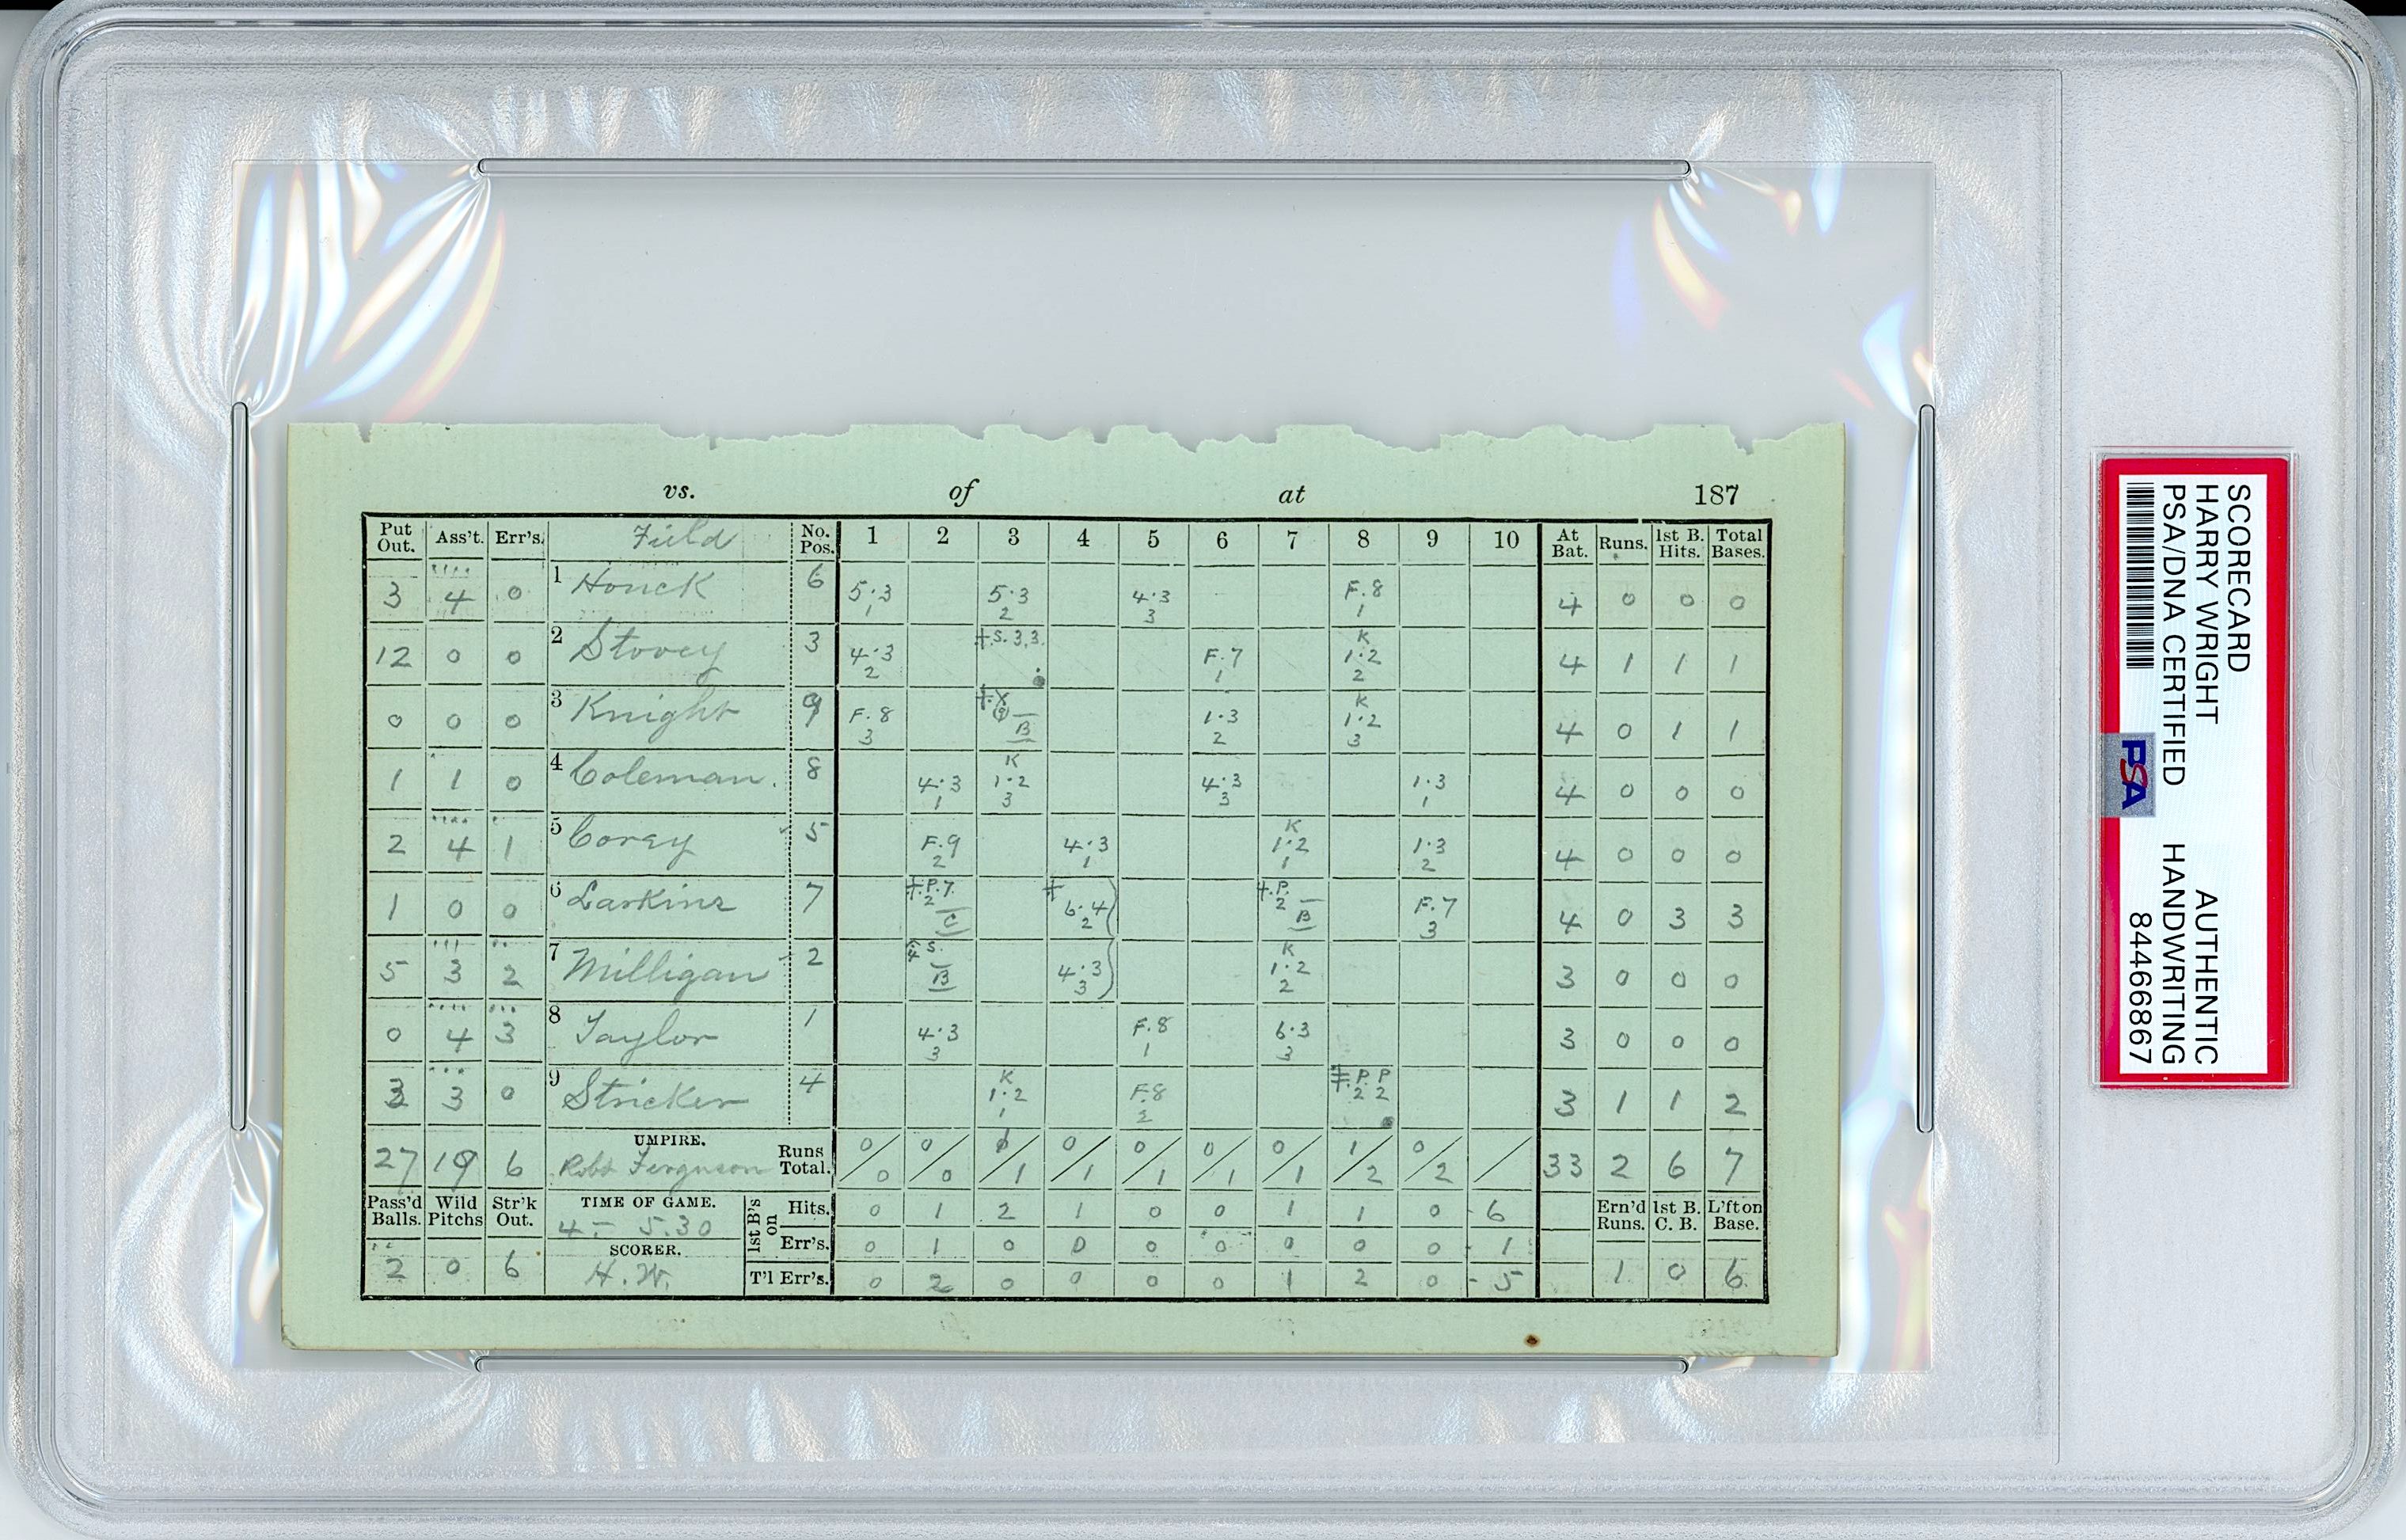 vs. of at 187
Put Out. Ass't. Err's. Field No. Pos. 1 2 3 4 5 6 7 8 9 10 At Bat. Runs. 1st B. Hits. Total Bases.
3 4 0 1 Houck 6 5·3 1 5·3 2 4·3 3 F.8 1 4 0 0 0
12 0 0 2 Stovey 3 4·3 2 S. 3,3. F.7 1 K 1·2 2 4 1 1 1
0 0 0 3 Knight 9 F.8 3 X B 1·3 2 K 1·2 3 4 0 1 1
1 1 0 4 Coleman. 8 4·3 1 K 1·2 3 4·3 3 1·3 1 4 0 0 0
2 4 1 5 Corey 5 F.9 2 4·3 1 K 1·2 1 1·3 2 4 0 0 0
1 0 0 6 Larkins 7 P. 7. 2 C 6·4 2 P. 2 B F.7 3 4 0 3 3
5 3 2 7 Milligan 2 S. 4 B 4·3 3 K 1·2 2 3 0 0 0
0 4 3 8 Taylor 1 4·3 3 F.8 1 6·3 3 3 0 0 0
3 3 0 9 Stricker 4 K 1·2 1 F.8 2 P. P 2 2 3 1 1 2
27 19 6 UMPIRE. Robt Ferguson Runs Total. 0/0 0/0 1/1 0/1 0/1 0/1 0/1 1/2 0/2 / 33 2 6 7
Pass'd Balls. Wild Pitchs Str'k Out. TIME OF GAME. 4 - 5.30 1st B's on Hits. 0 1 2 1 0 0 1 1 0 - 6 Ern'd Runs. 1st B. C. B. L'ft on Base.
Err's. 0 1 0 0 0 0 0 0 0 - 1
2 0 6 SCORER. H. W. T'l Err's. 0 2 0 0 0 0 1 2 0 - 5 1 0 6
SCORECARD
HARRY WRIGHT AUTHENTIC
PSA/DNA CERTIFIED HANDWRITING
PSA 84466867